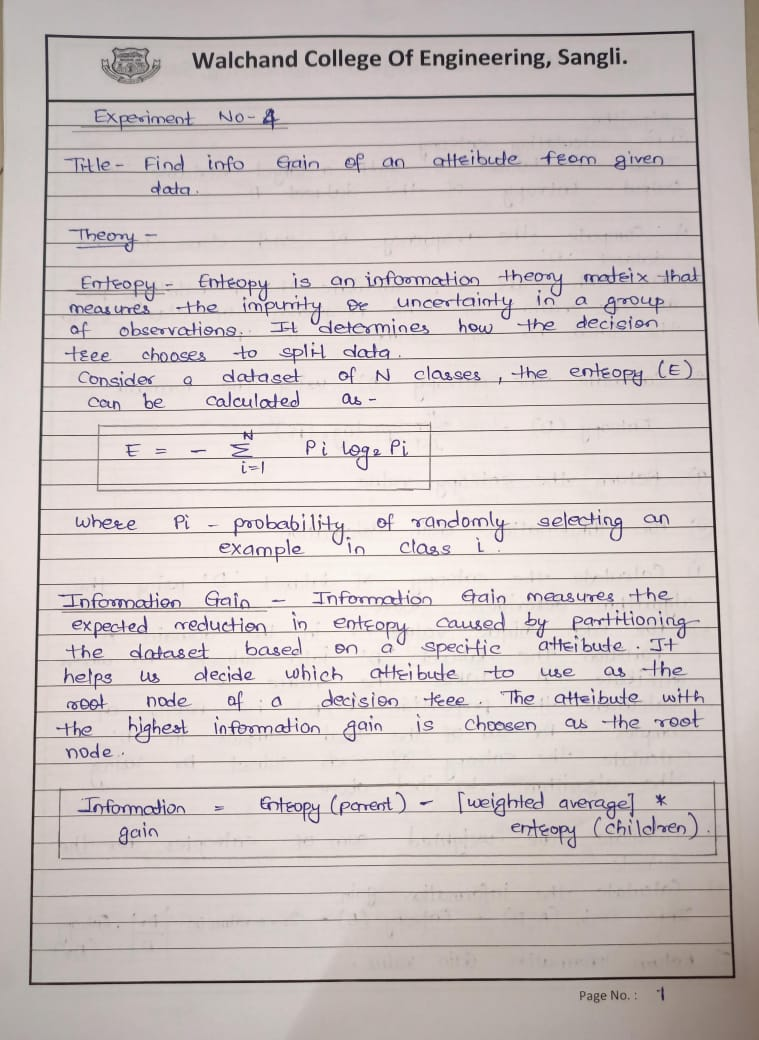 Walchand College Of Engineering, Sangli.
Experiment No-4
Title- Find info Gain of an attribute from given
data.
Theory -
Entropy - Entropy is an information theory matrix that
measures the impurity or uncertainty in a group
of observations. It determines how the decision
tree chooses to split data.
Consider a dataset of N classes, the entropy (E)
can be calculated as -
E = - N Σ i=1 Pi log2 Pi
where Pi - probability of randomly selecting an
example in class i.
Information Gain - Information Gain measures the
expected reduction in entropy caused by partitioning
the dataset based on a specific attribute. It
helps us decide which attribute to use as the
root node of a decision tree. The attribute with
the highest information gain is choosen as the root
node.
Information = Entropy (parent) - [weighted average] *
gain entropy (children).
Page No. : 1